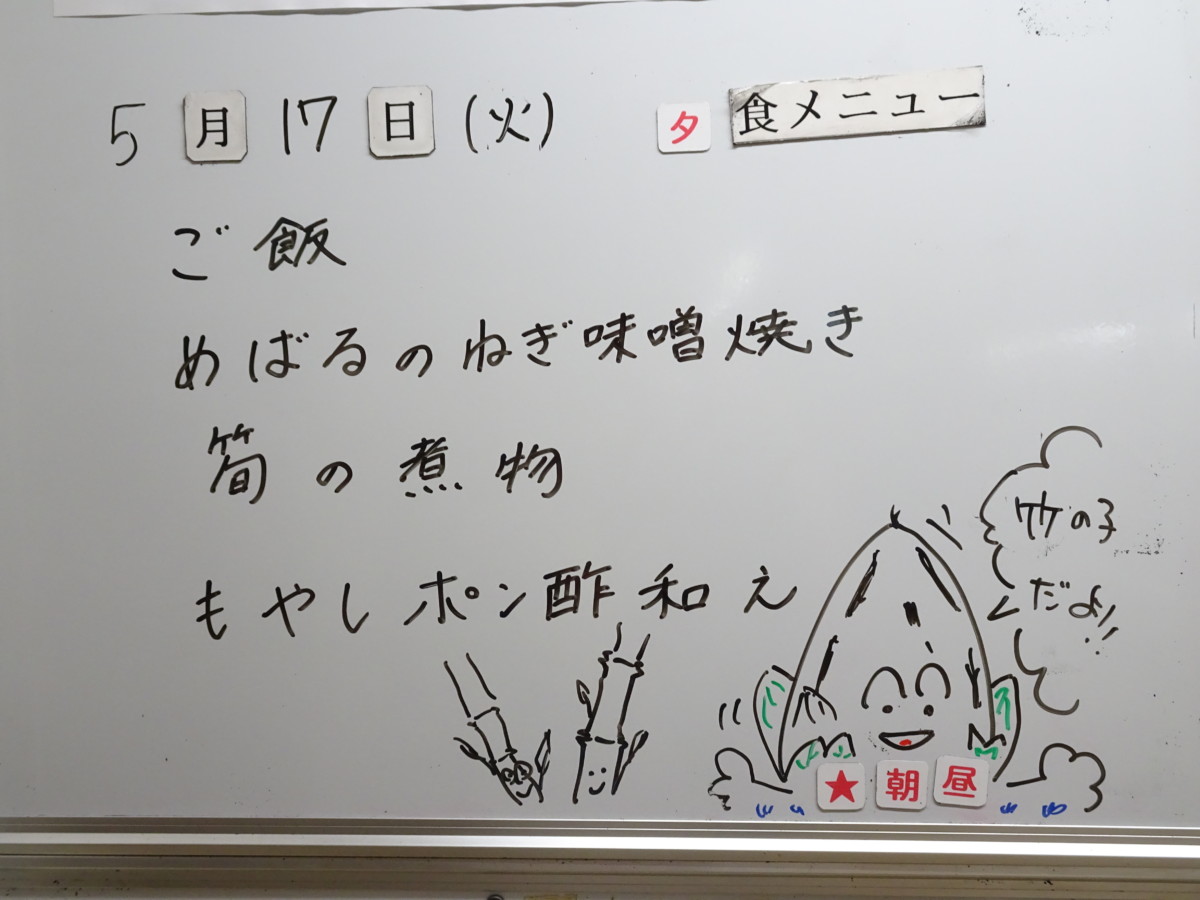 5月17日(火) 夕食メニュー
ご飯
めばるのねぎ味噌焼き
筍の煮物
もやしポン酢和え
竹の子
だよ!!
★朝昼